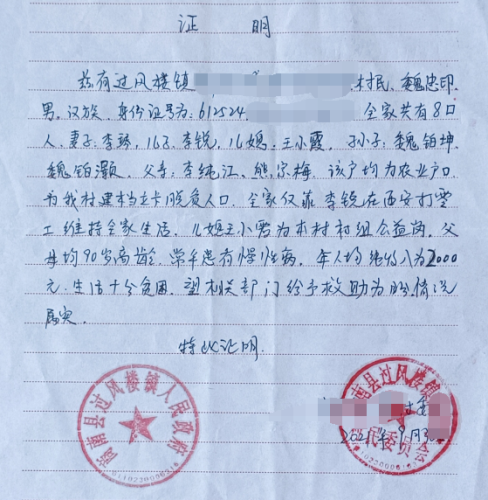 证 明
兹有过风楼镇 村民、魏忠印
男,汉族,身份证号为:612524 全家共有8口
人,妻子:李琴,儿子:李锐,儿媳:王小霞,孙子:魏铂坤
魏铂灏,父亲:李纯江、熊宗梅,该户均为农业户口
为我村建档立卡脱贫人口,全家仅靠李锐在西安打零
工维持全家生活,儿媳王小男为本村初组公益岗,父
母均90岁高龄,常年患有慢性病,年人均纯收入为2000
元,生活十分贫困,望相关部门给予救助为盼情况
属实。
特此证明.
商南县过风楼镇人民政府
南县过风楼镇
委员会
2021年9月3